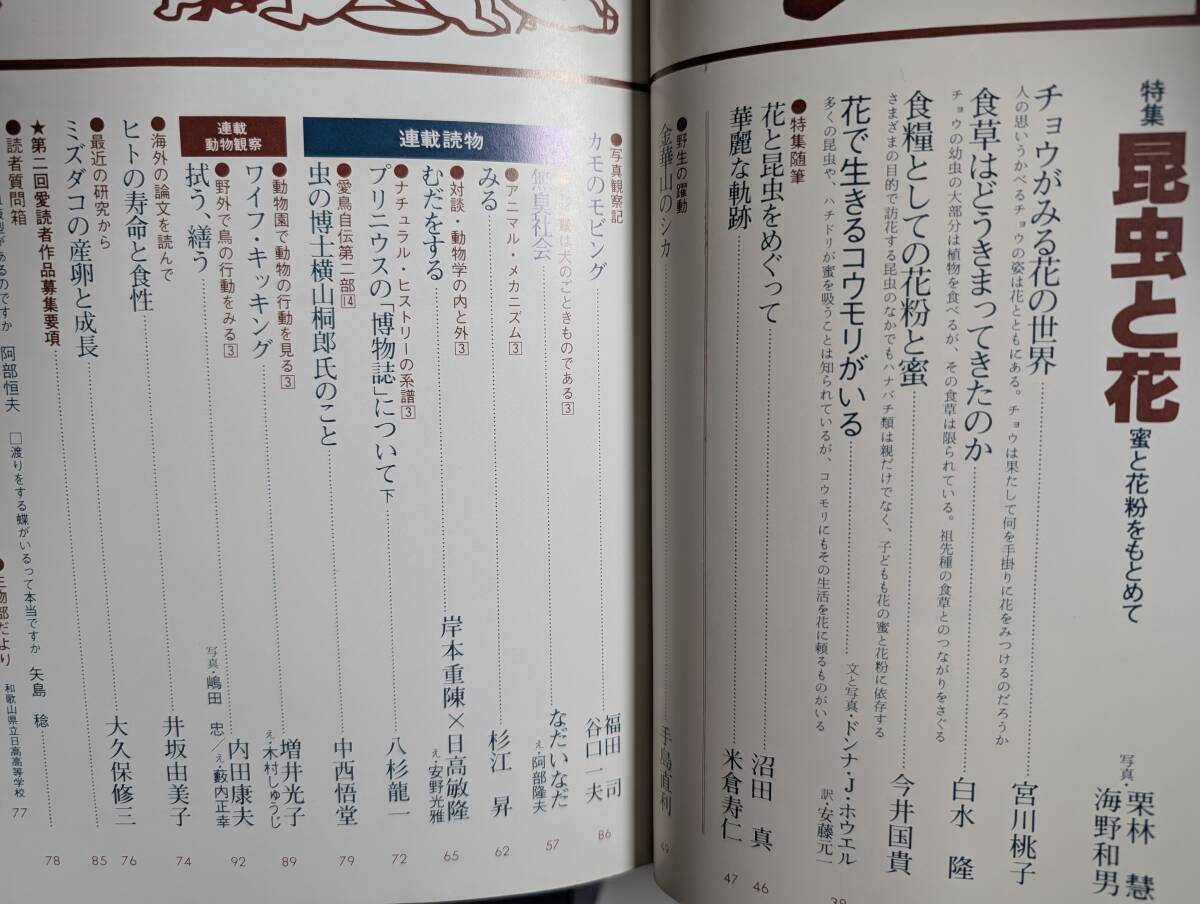 特集
昆虫と花
蜜と花粉をもとめて
写真・
栗林 慧
海野和男
チョウがみる花の世界
宮川桃子
人の思いうかべるチョウの姿は花とともにある。チョウは果たして何を手掛りに花をみつけるのだろうか
食草はどうきまってきたのか
白水 隆
チョウの幼虫の大部分は植物を食べるが、その食草は限られている。祖先種の食草とのつながりをさぐる
食糧としての花粉と蜜
今井国貴
さまざまの目的で訪花する昆虫のなかでもハナバチ類は親だけでなく、子どもも花の蜜と花粉に依存する
花で生きるコウモリがいる
文と写真・ドンナ・J・ホウエル
訳・安藤元一
38
多くの昆虫や、ハチドリが蜜を吸うことは知られているが、コウモリにもその生活を花に頼るものがいる
●特集随筆
花と昆虫をめぐって
沼田 真
46
華麗な軌跡
米倉寿仁
47
●野生の躍動
金華山のシカ
手島直利
49
●写真観察記
カモのモビング
福田 司
谷口一夫
86
連載読物
談は犬のごときものである3
無臭社会
なだいなだ
え・阿部隆夫
57
●アニマル・メカニズム3
みる
杉江 昇
62
●対談・動物学の内と外3
むだをする
岸本重陳×日高敏隆
え・安野光雅
65
●ナチュラル・ヒストリーの系譜3
プリニウスの「博物誌」について 下
八杉龍一
72
●愛鳥自伝第二部14
虫の博士横山桐郎氏のこと
中西悟堂
79
連載
動物観察
●動物園で動物の行動を見る3
ワイフ・キッキング
増井光子
え・木村しゅうじ
89
●野外で鳥の行動をみる3
拭う、繕う
内田康夫
写真・嶋田 忠／え・藪内正幸
92
●海外の論文を読んで
ヒトの寿命と食性
井坂由美子
74
76
●最近の研究から
ミズダコの産卵と成長
大久保修三
85
★第二回愛読者作品募集要項
78
●読者質問箱
製があるのですか 阿部恒夫
□渡りをする蝶がいるって本当ですか 矢島 稔
物部だより
和歌山県立日高高等学校
77